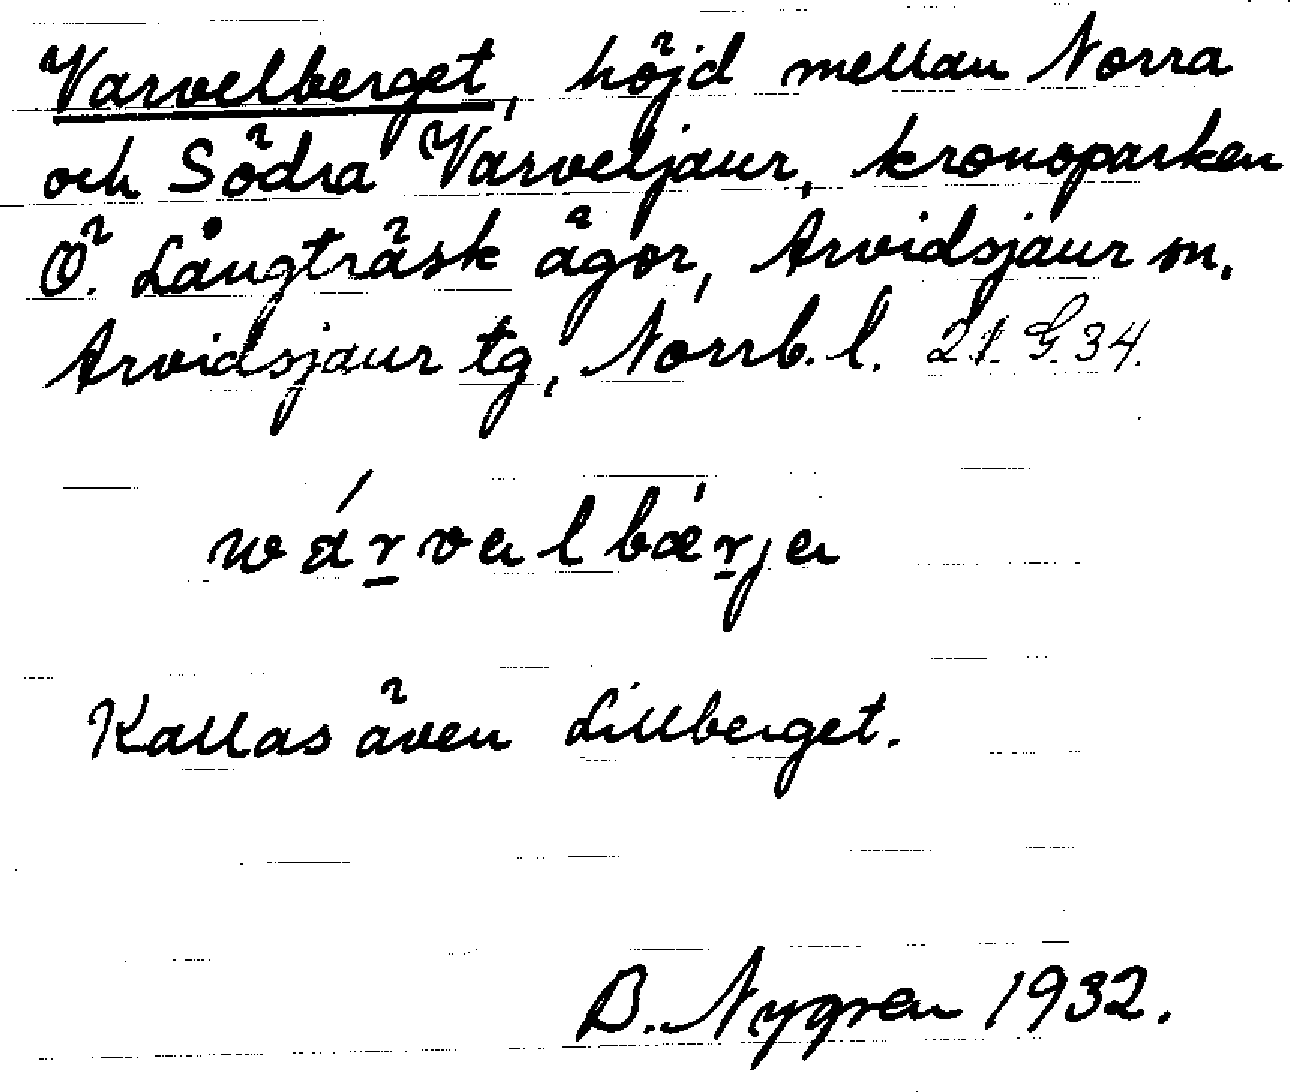 Varvelberget, höjd mellan Norra
och Södra Varveljaur, kronoparken
Ö. Långträsk ägor, Arvidsjaur sn,
Arvidsjaur tg, Norrb. l. 21. G. 34.
Kallas även Lillberget.
B. Nygren 1932.